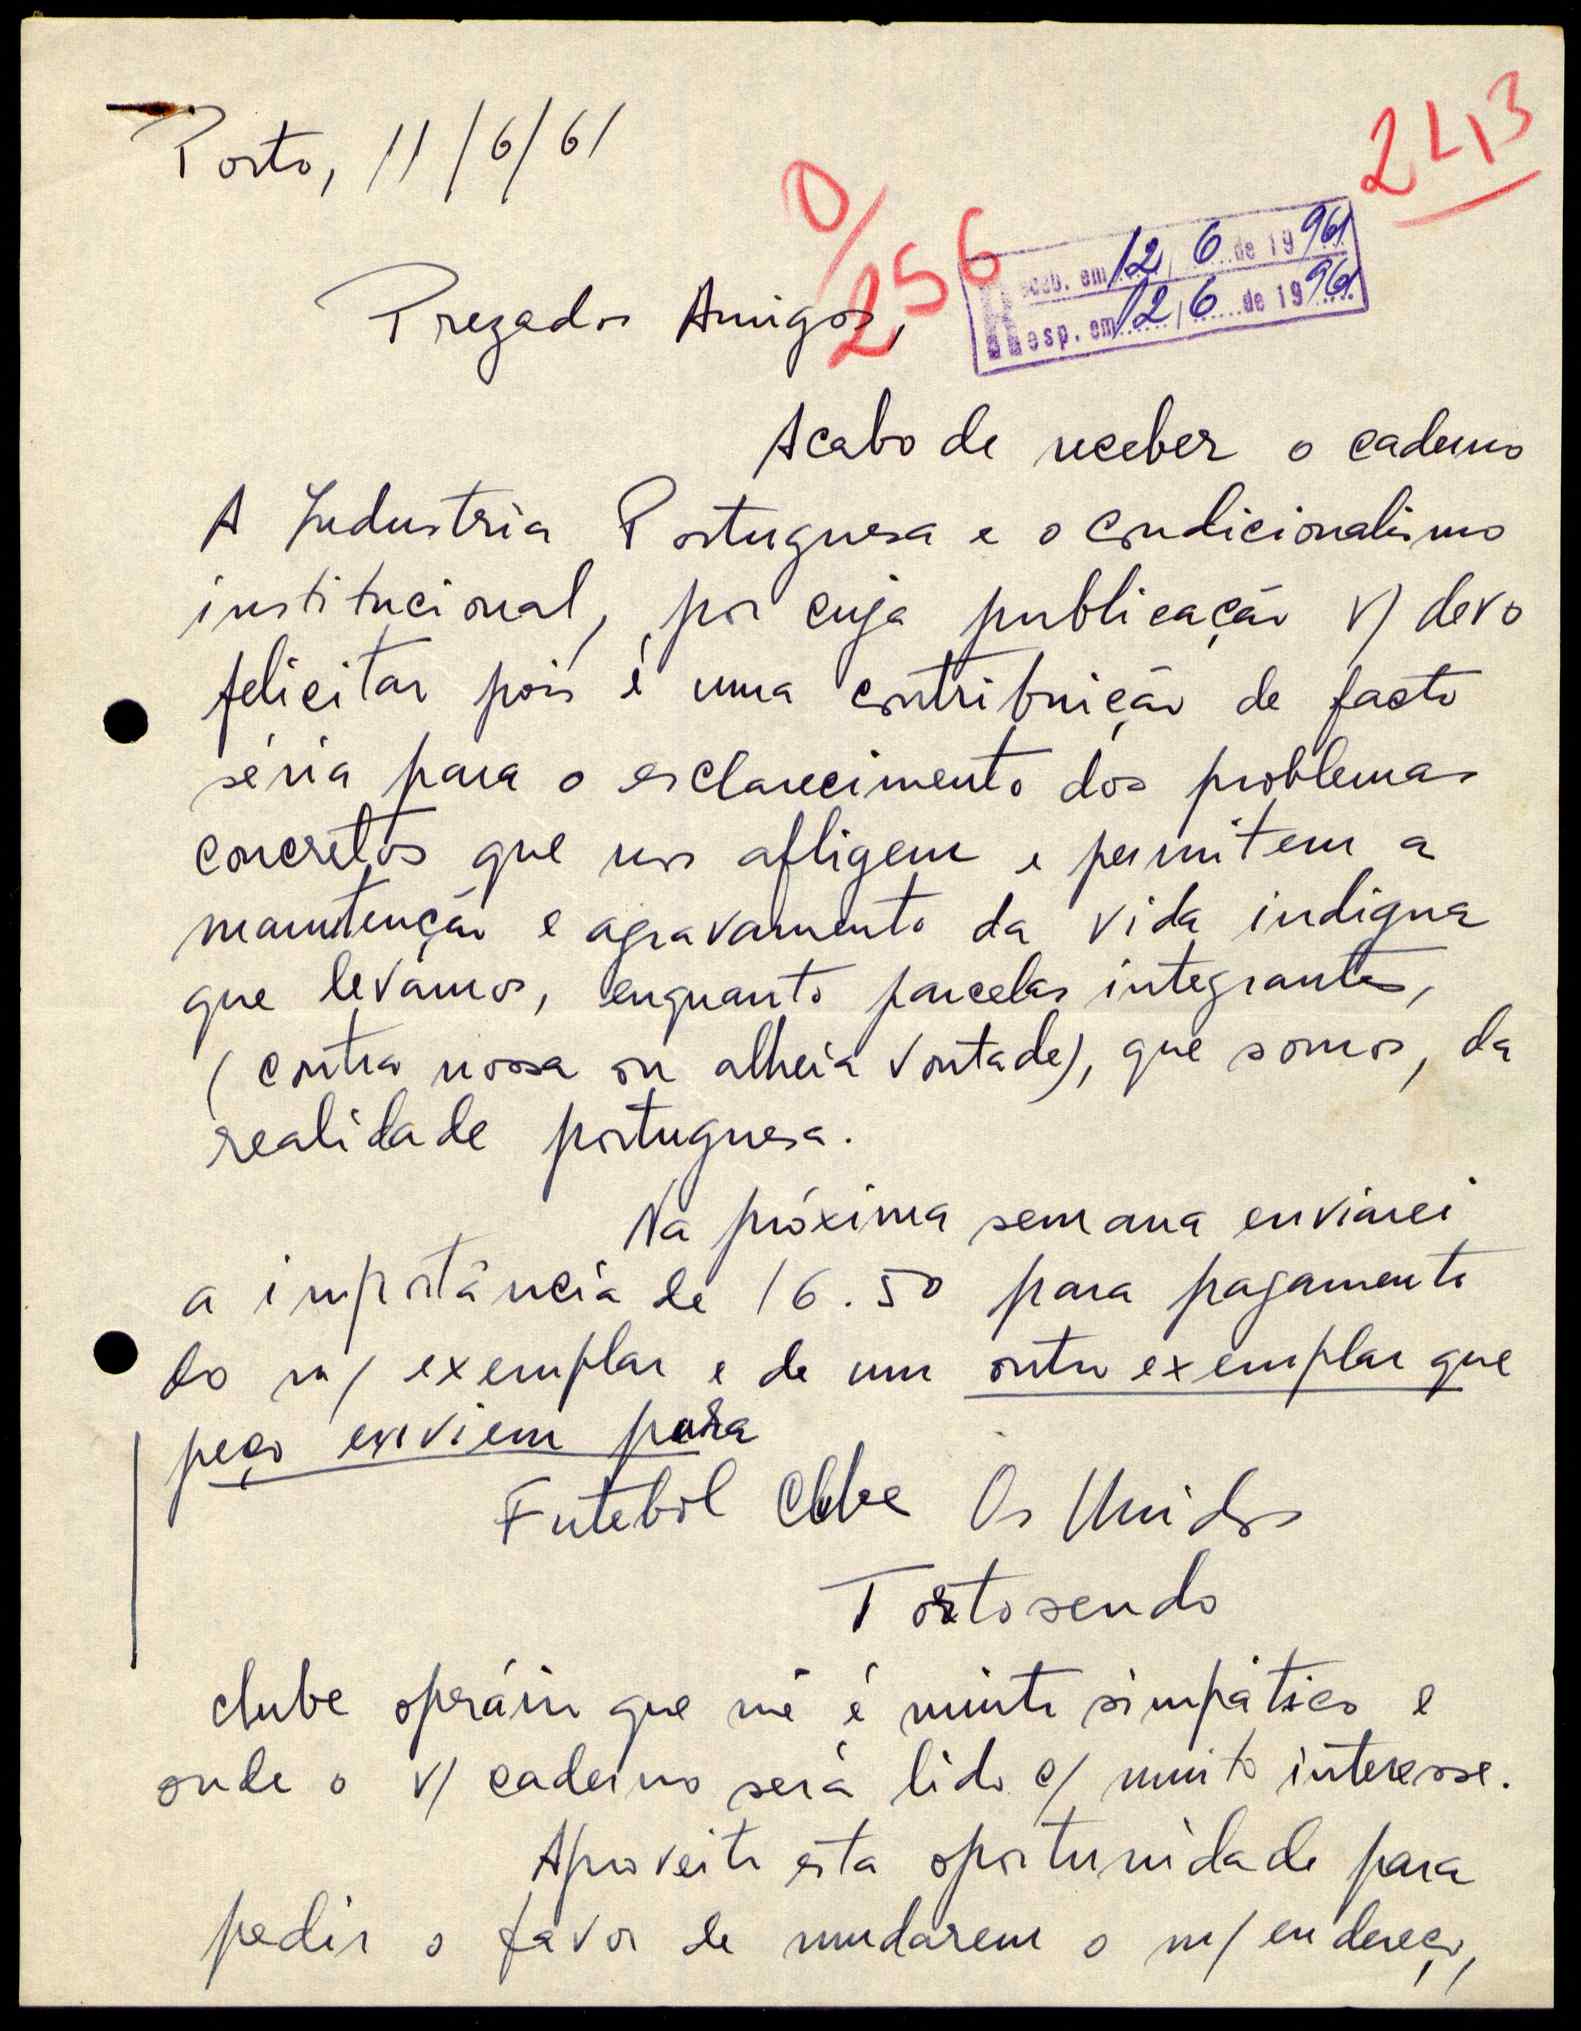 Porto, 11/6/61
2413
D/256
Receb. em 12, 6 de 1961
Resp. em 12, 6 de 1961
Prezados Amigos,
Acabo de receber o caderno
A Industria Portuguesa e o condicionalismo
institucional, por cuja publicação v/ devo
felicitar pois é uma contribuição de facto
séria para o esclarecimento dos problemas
concretos que nos afligem e permitem a
manutenção e agravamento da vida indigna
que levamos, enquanto parcelas integrantes,
(contra nossa ou alheia vontade), que somos, da
realidade portuguesa.
Na próxima semana enviarei
a importância de 16.50 para pagamento
do m/ exemplar e de um outro exemplar que
peço enviem para
Futebol Clube Os Unidos
Tortosendo
clube operário que me é muito simpático e
onde o v/ caderno será lido c/ muito interesse.
Aproveito esta oportunidade para
pedir o favor de mudarem o m/ endereço,